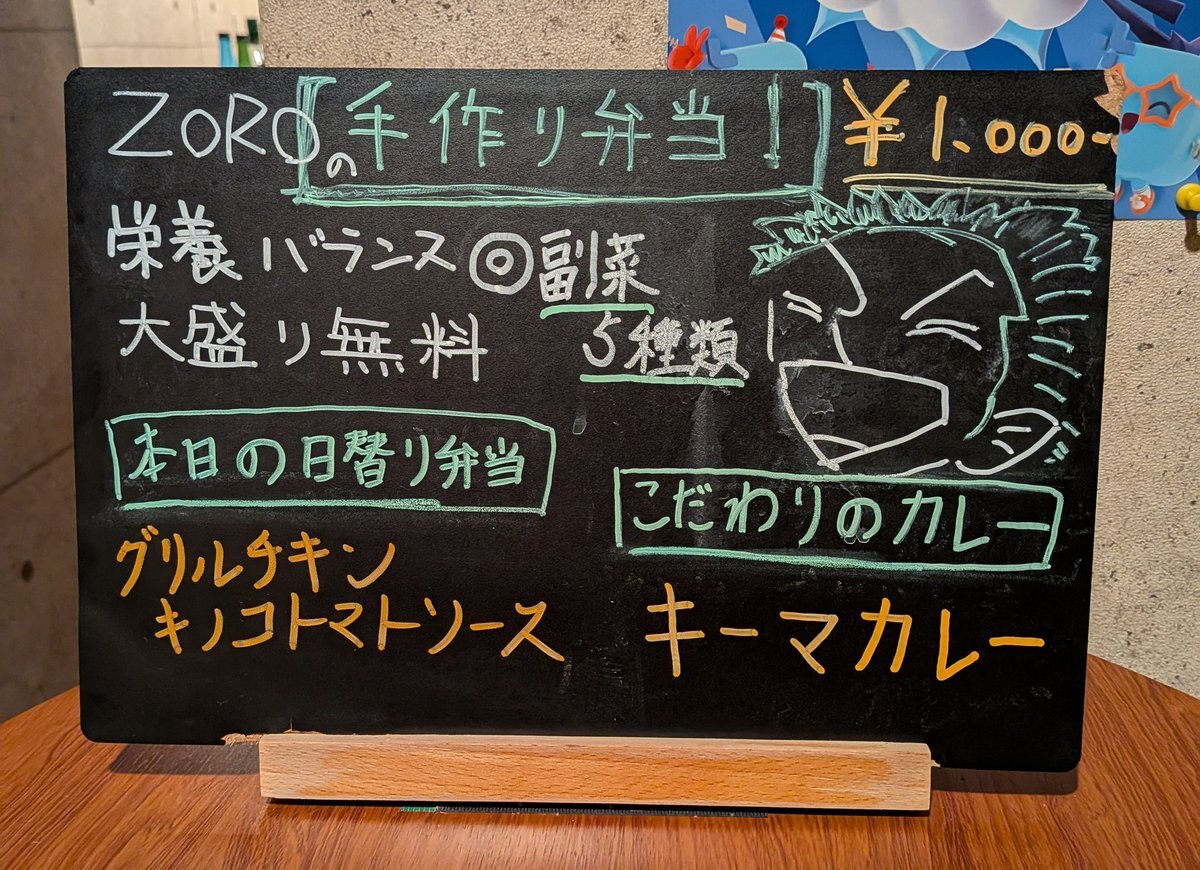 ZOROの手作り弁当! ¥1.000-
栄養バランス◎副菜
大盛り無料 5種類
本日の日替り弁当
グリルチキン
キノコトマトソース
こだわりのカレー
キーマカレー